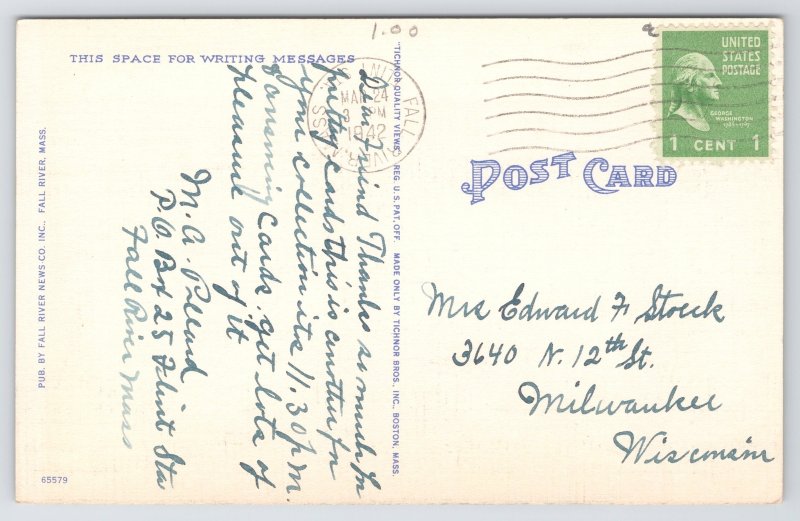 1.00
a
THIS SPACE FOR WRITING MESSAGES
FALL RIVER, MASS.
MAR 24
3 PM
1942
UNITED
STATES
POSTAGE
GEORGE
WASHINGTON
1 CENT 1
POST CARD
Dear Friend Thanks so much for
pretty cards this is another for
your collection its 11.30 p.m.
answering cards. get lots of
pleasure out of it
M. A. Pollard
P.O. Box 25 Flint Sta
Fall River Mass
"TICHNOR QUALITY VIEWS" REG. U.S. PAT. OFF. MADE ONLY BY TICHNOR BROS., INC., BOSTON, MASS.
Mrs Edward F Stoeck
3640 N. 12th St.
Milwaukee
Wisconsin
PUB. BY FALL RIVER NEWS CO. INC., FALL RIVER, MASS.
65579